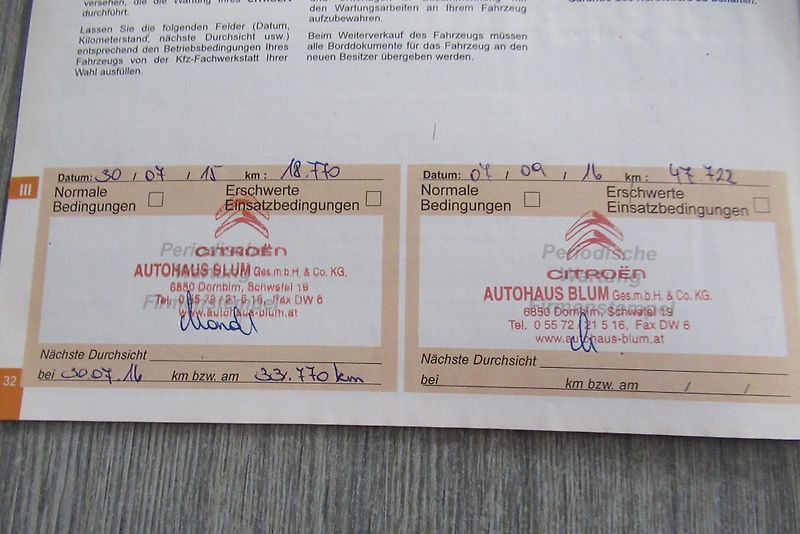 versehen, die die Wartung Ihres CITROËN
durchführt.
Lassen Sie die folgenden Felder (Datum,
Kilometerstand, nächste Durchsicht usw.)
entsprechend den Betriebsbedingungen Ihres
Fahrzeugs von der Kfz-Fachwerkstatt Ihrer
Wahl ausfüllen.
den Wartungsarbeiten an Ihrem Fahrzeug
aufzubewahren.
Beim Weiterverkauf des Fahrzeugs müssen
alle Borddokumente für das Fahrzeug an den
neuen Besitzer übergeben werden.
III
Datum: 30 / 07 / 15 km : 18.770
Normale
Bedingungen
Erschwerte
Einsatzbedingungen
Periodische
Wartung
Firmenstempel
CITROËN
AUTOHAUS BLUM Ges.m.b.H. & Co. KG.
6850 Dornbirn, Schwefel 19
Tel. 0 55 72 / 21 5 16, Fax DW 6
www.autohaus-blum.at
Nächste Durchsicht
bei 30.07.16 km bzw. am 33.770 km
32
Datum: 07 / 09 / 16 km : 47.722
Normale
Bedingungen
Erschwerte
Einsatzbedingungen
Periodische
Wartung
Firmenstempel
CITROËN
AUTOHAUS BLUM Ges.m.b.H. & Co. KG.
6850 Dornbirn, Schwefel 19
Tel. 0 55 72 / 21 5 16, Fax DW 6
www.autohaus-blum.at
Nächste Durchsicht
bei km bzw. am / /